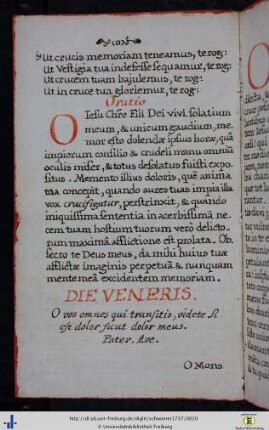 Ut crucis memoriam teneamus, te rog:
Ut Vestigia tua indefesse sequamur, te rog:
Ut crucem tuam bajulemus, te rog:
Ut in cruce tua gloriemur, te rog:
Oratio
O Iesu Chre Fili Dei vivi, solatium
meum, & unicum gaudium, me,
mor esto dolendæ ipsius horæ, quâ
impiorum consilio & crudeli manu omniũ
oculis miser, & totus desolatus fuisti expo,
situs. Memento illius doloris, quẽ anima
tua concepit, quando aures tuas impia illa
vox crucifigatur, perstrinxit, & quando
iniquissima sententia in acerbissimã ne,
cem tuam hostium tuorum verò delicto,
rum maximâ afflictione est prolata. Ob,
secro te Deus meus, da mihi huius tuæ
afflictæ imaginis perpetuã & nunquam
mente meâ excidentem memoriam.
DIE VENERIS.
O vos omnes qui transitis, videte si
est dolor sicut dolor meus.
Pater. Ave.
O Mons
http://dl.ub.uni-freiburg.de/diglit/schwoerer1737/0020
© Universitätsbibliothek Freiburg